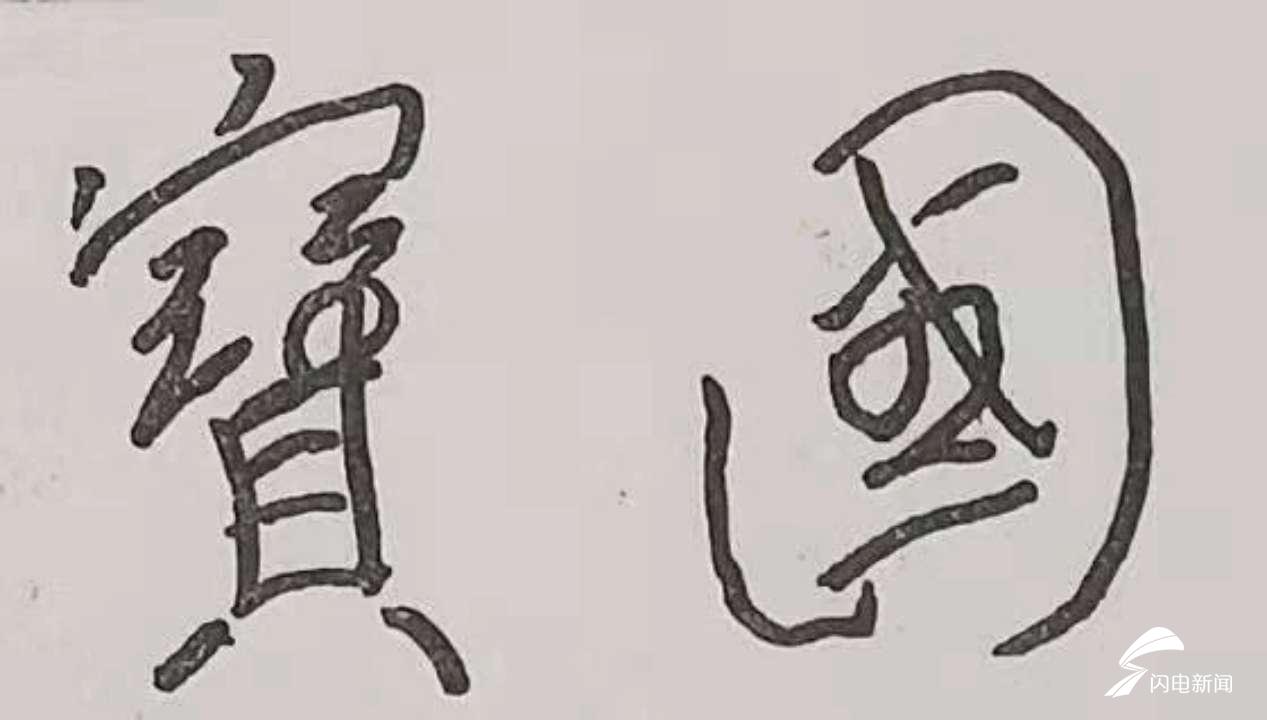 寶國
闪电新闻